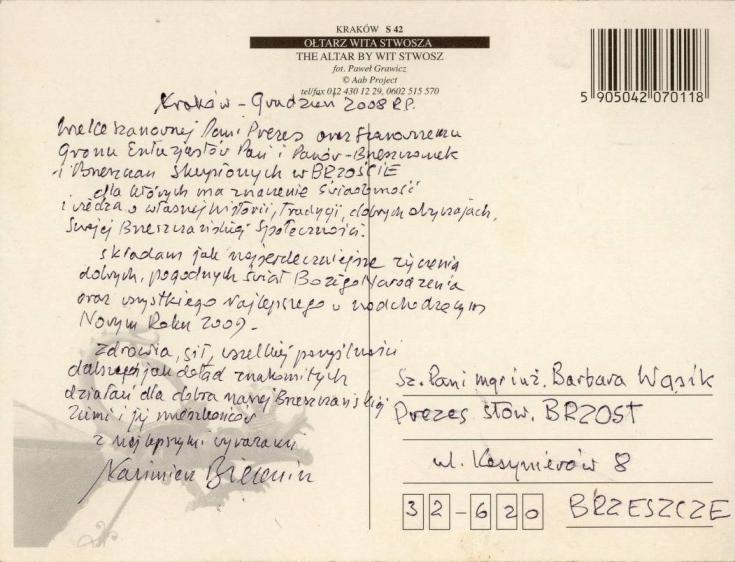 KRAKÓW S 42
OŁTARZ WITA STWOSZA
THE ALTAR BY WIT STWOSZ
fot. Paweł Grawicz
© Aab Project
tel/fax 012 430 12 29, 0602 515 570
5 905042 070118
Kraków - Grudzień 2008 R.P.
Wielce szanownej Pani Prezes oraz szanownemu
Gronu Entuzjastów Pań i Panów - Brzeszczanek
i Brzeszczan skupionych w BRZOŚCIE
dla których ma znaczenie świadomość
i wiedza o własnej historii, tradycji, dobrych obyczajach,
swojej Brzeszczańskiej Społeczności.
składam jak najserdeczniejsze życzenia
dobrych, pogodnych świąt Bożego Narodzenia
oraz wszystkiego najlepszego w nadchodzącym
Novym Roku 2009.
Zdrowia, sił, wszelkiej pomyślności
dalszych jak dotąd znakomitych
działań dla dobra naszej Brzeszczańskiej
Ziemi i jej mieszkańców
z najlepszymi wyrazami
Kazimierz
Sz. Pani mgr inż. Barbara Wąsik
Prezes stow. BRZOST
ul. Kosynierów 8
32-620 BRZESZCZE